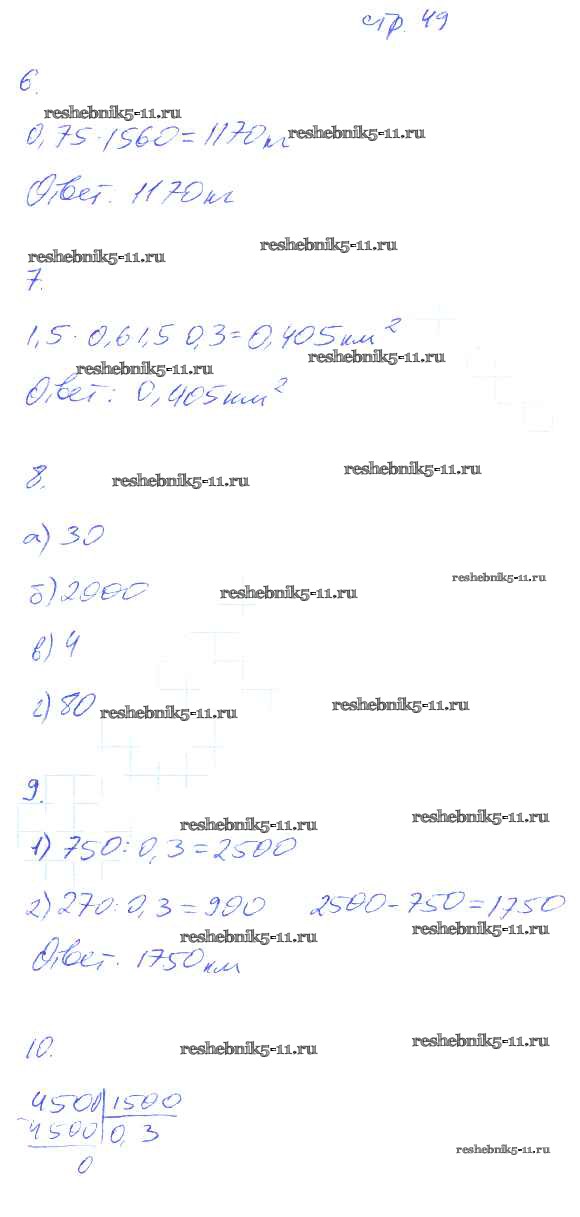 стр. 49
6.
reshebnik5-11.ru
0,75·1560=1170кг reshebnik5-11.ru
Ответ. 1170кг
reshebnik5-11.ru reshebnik5-11.ru
7.
1,5·0,6 1,5 0,3=0,405км²
reshebnik5-11.ru reshebnik5-11.ru
Ответ: 0,405км²
8. reshebnik5-11.ru reshebnik5-11.ru
а) 30
б) 2000 reshebnik5-11.ru reshebnik5-11.ru
в) 4
г) 80 reshebnik5-11.ru reshebnik5-11.ru
9.
reshebnik5-11.ru reshebnik5-11.ru
1) 750:0,3=2500
2) 270:0,3=900 2500-750=1750
reshebnik5-11.ru reshebnik5-11.ru
Ответ. 1750км
10. reshebnik5-11.ru reshebnik5-11.ru
450 1500
4500 0,3
0 reshebnik5-11.ru